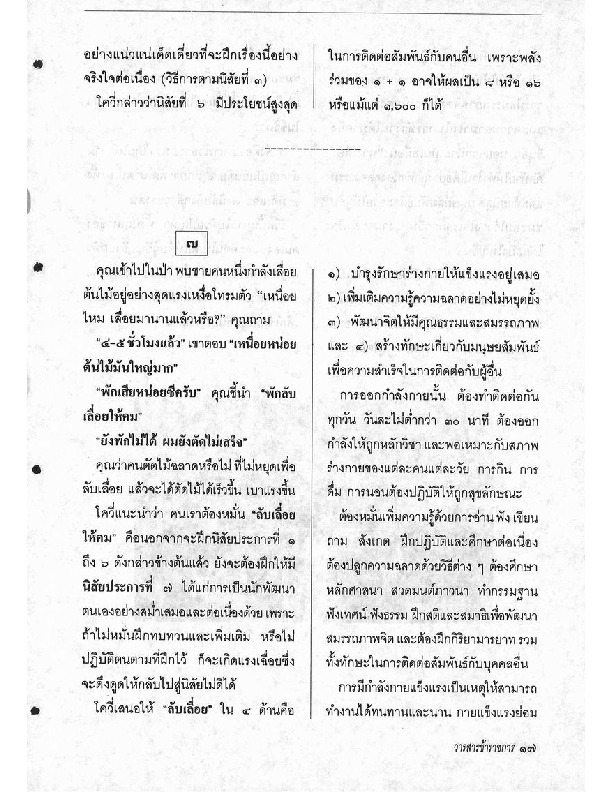 อย่างแน่วแน่เด็ดเดี่ยวที่จะฝึกเรื่องนี้อย่าง
จริงใจต่อเนื่อง (วิธีการตามนิสัยที่ ๓)
โควี่กล่าวว่านิสัยที่ ๖ มีประโยชน์สูงสุด
ในการติดต่อสัมพันธ์กับคนอื่น เพราะพลัง
ร่วมของ ๑ + ๑ อาจให้ผลเป็น ๘ หรือ ๑๖
หรือแม้แต่ ๑,๖๐๐ ก็ได้
๗
คุณเข้าไปในป่า พบชายคนหนึ่งกำลังเลื่อย
ต้นไม้อยู่อย่างสุดแรงเหงื่อโทรมตัว "เหนื่อย
ไหม เลื่อยมานานแล้วหรือ?" คุณถาม
"๔-๕ ชั่วโมงแล้ว" เขาตอบ "เหนื่อยหน่อย
ต้นไม้มันใหญ่มาก"
"พักเสียหน่อยซีครับ" คุณชี้นำ "พักลับ
เลื่อยให้คม"
"ยังพักไม่ได้ ผมยังตัดไม่เสร็จ"
คุณว่าคนตัดไม้ฉลาดหรือไม่ ที่ไม่หยุดเพื่อ
ลับเลื่อย แล้วจะได้ตัดไม้ได้เร็วขึ้น เบาแรงขึ้น
โควี่แนะนำว่า คนเราต้องหมั่น "ลับเลื่อย
ให้คม" คือนอกจากจะฝึกนิสัยประการที่ ๑
ถึง ๖ ดังกล่าวข้างต้นแล้ว ยังจะต้องฝึกให้มี
นิสัยประการที่ ๗ ได้แก่การเป็นนักพัฒนา
ตนเองอย่างสม่ำเสมอและต่อเนื่องด้วย เพราะ
ถ้าไม่หมั่นฝึกทบทวนและเพิ่มเติม หรือไม่
ปฏิบัติตนตามที่ฝึกไว้ ก็จะเกิดแรงเฉื่อยซึ่ง
จะดึงดูดให้กลับไปสู่นิสัยไม่ดีได้
โควี่เสนอให้ "ลับเลื่อย" ใน ๔ ด้านคือ
๑) บำรุงรักษาร่างกายให้แข็งแรงอยู่เสมอ
๒) เพิ่มเติมความรู้ความฉลาดอย่างไม่หยุดยั้ง
๓) พัฒนาจิตให้มีคุณธรรมและสมรรถภาพ
และ ๔) สร้างทักษะเกี่ยวกับมนุษยสัมพันธ์
เพื่อความสำเร็จในการติดต่อกับผู้อื่น
การออกกำลังกายนั้น ต้องทำติดต่อกัน
ทุกวัน วันละไม่ต่ำกว่า ๓๐ นาที ต้องออก
กำลังให้ถูกหลักวิชา และพอเหมาะกับสภาพ
ร่างกายของแต่ละคนแต่ละวัย การกิน การ
ดื่ม การนอนต้องปฏิบัติให้ถูกสุขลักษณะ
ต้องหมั่นเพิ่มความรู้ด้วยการอ่าน ฟัง เขียน
ถาม สังเกต ฝึกปฏิบัติและศึกษาต่อเนื่อง
ต้องปลูกความฉลาดด้วยวิธีต่าง ๆ ต้องศึกษา
หลักศาสนา สวดมนต์ภาวนา ทำกรรมฐาน
ฟังเทศน์ ฟังธรรม ฝึกสติและสมาธิเพื่อพัฒนา
สมรรถภาพจิต และต้องฝึกกิริยามารยาท รวม
ทั้งทักษะในการติดต่อสัมพันธ์กับบุคคลอื่น
การมีกำลังกายแข็งแรงเป็นเหตุให้สามารถ
ทำงานได้ทนทานและนาน กายแข็งแรงย่อม
วารสารข้าราชการ ๑๗